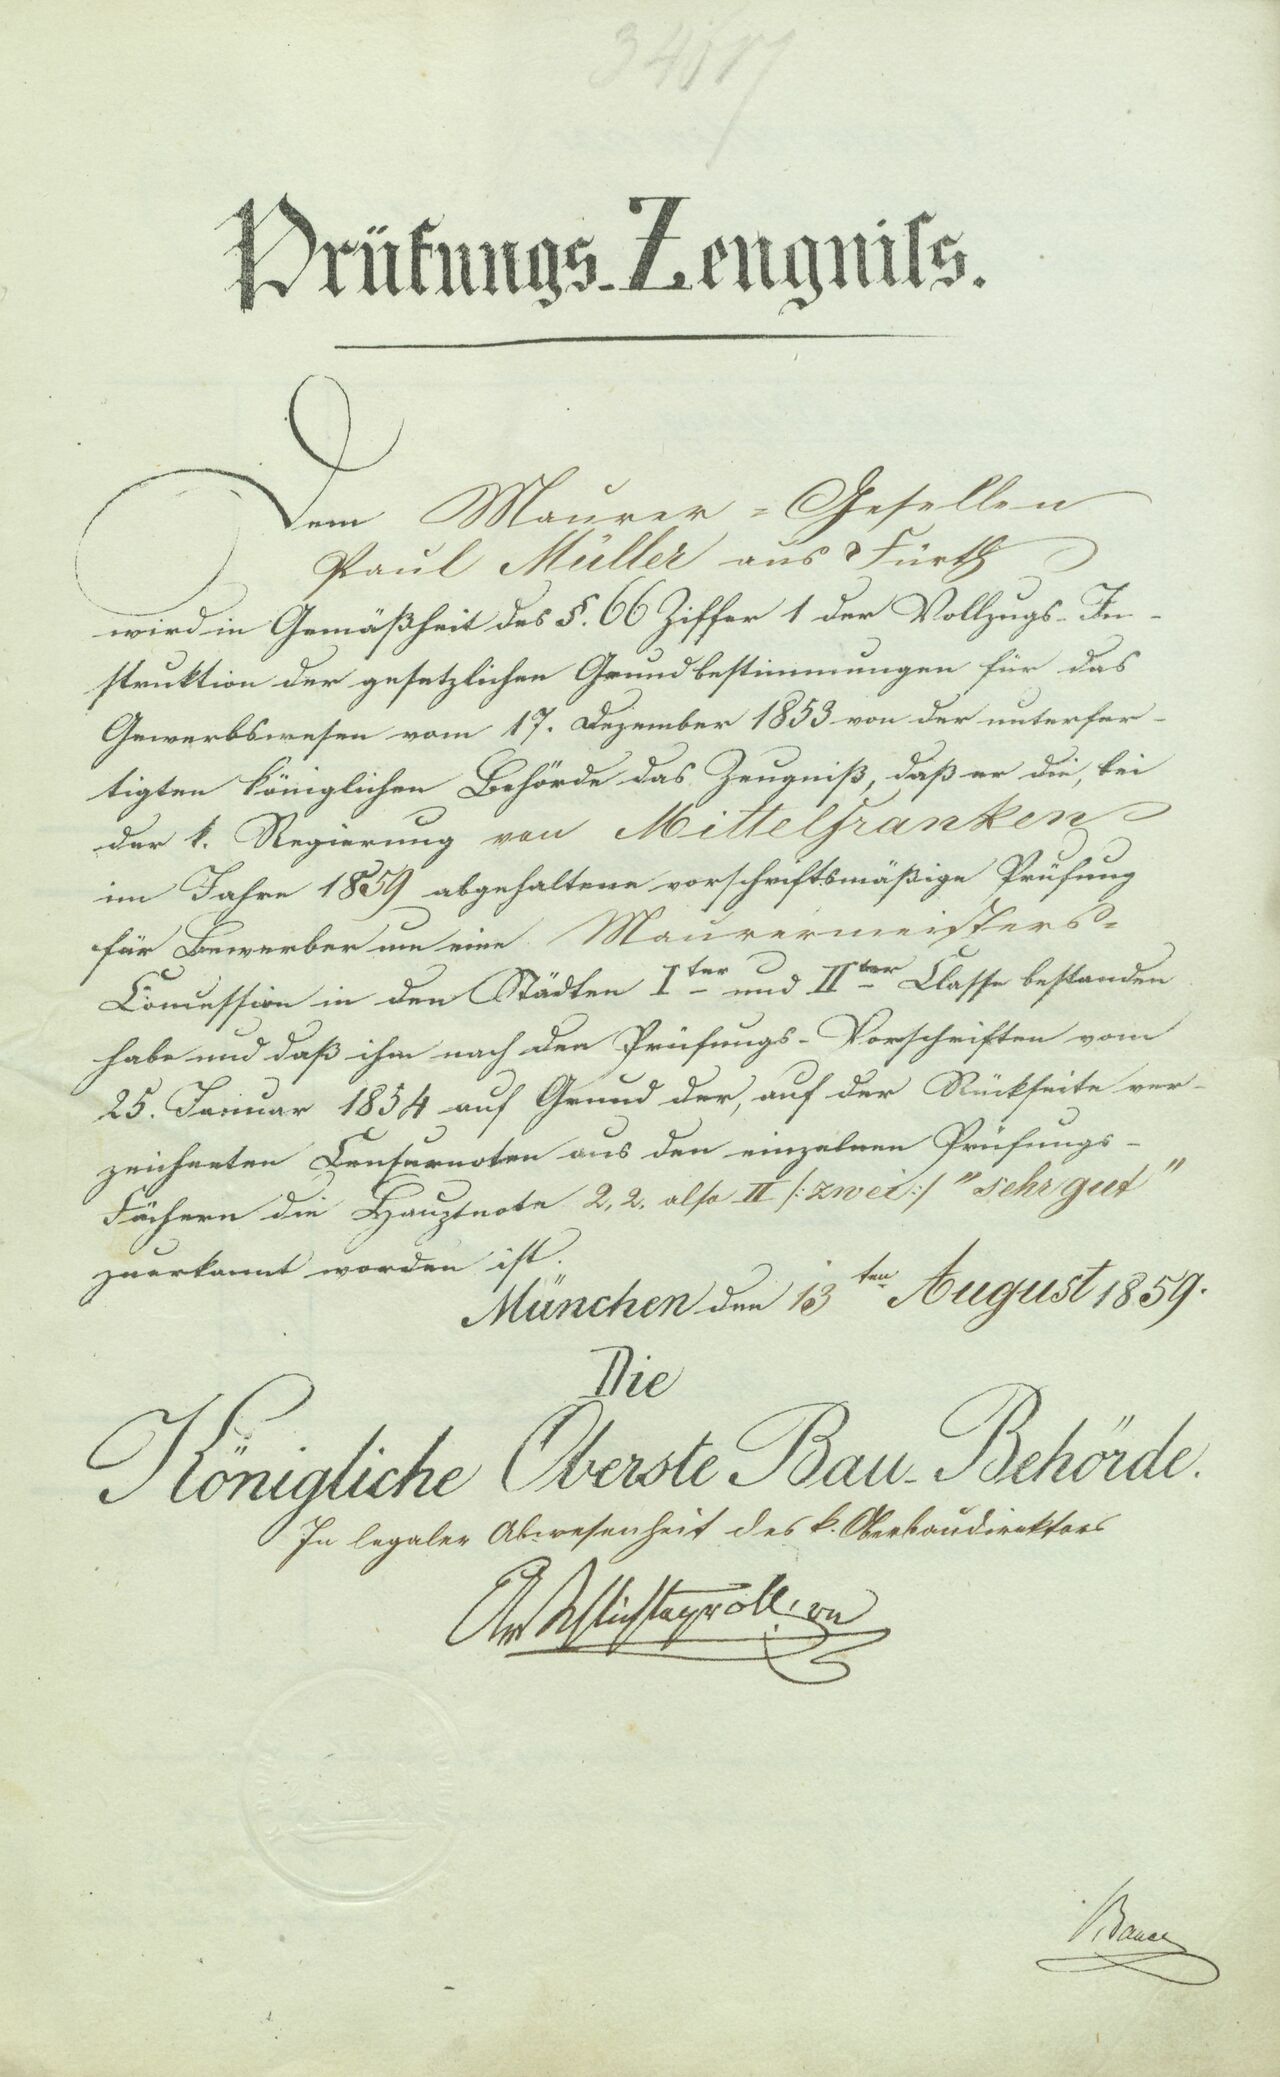 Prüfungs-Zeugniss.
Dem Maurer-Gesellen
Paul Müller aus Fürth
wird in Gemäßheit des §. 66 Ziffer 1 der Vollzugs-In-
struktion der gesetzlichen Grundbestimmungen für das
Gewerbswesen vom 17. Dezember 1853 von der unterfer-
tigten königlichen Behörde das Zeugniß, daß er die, bei
der k. Regierung von Mittelfranken
im Jahre 1859 abgehaltene vorschriftsmäßige Prüfung
für Bewerber um eine Maurermeisters-
Concession in den Städten Iter und IIter Classe bestanden
habe und daß ihm nach den Prüfungs-Vorschriften vom
25. Januar 1854 auf Grund der, auf der Rückseite ver-
zeichneten Censurnoten aus den einzelnen Prüfungs-
Fächern die Hauptnote 2,2. also II /: zwei :/ "sehr gut"
zuerkannt worden ist.
München den 13ten August 1859.
Die
Königliche Oberste Bau-Behörde.
In legaler Abwesenheit des k. Oberbaudirektors